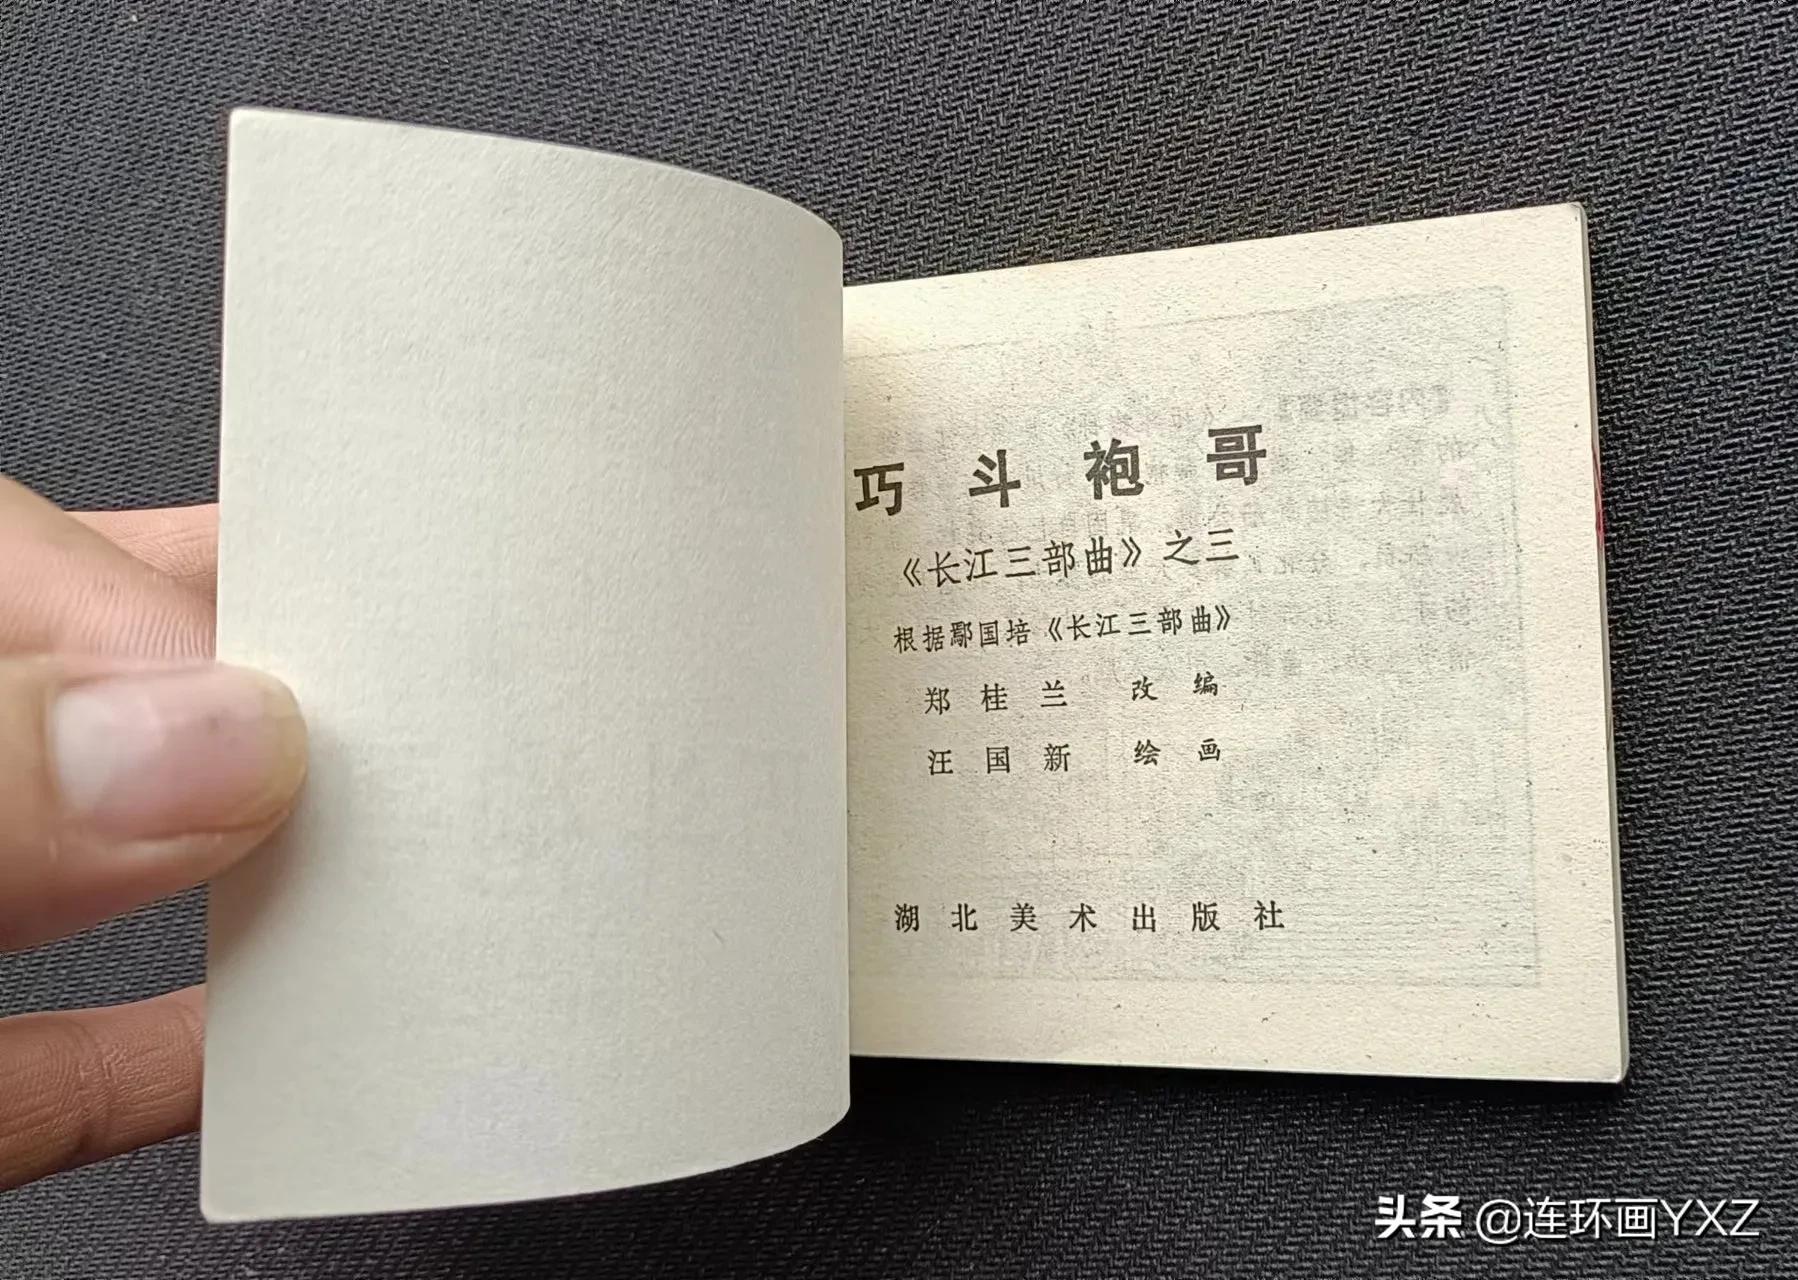 巧斗袍哥
《长江三部曲》之三
根据鄢国培《长江三部曲》
郑桂兰 改编
汪国新 绘画
湖北美术出版社
头条 @连环画YXZ